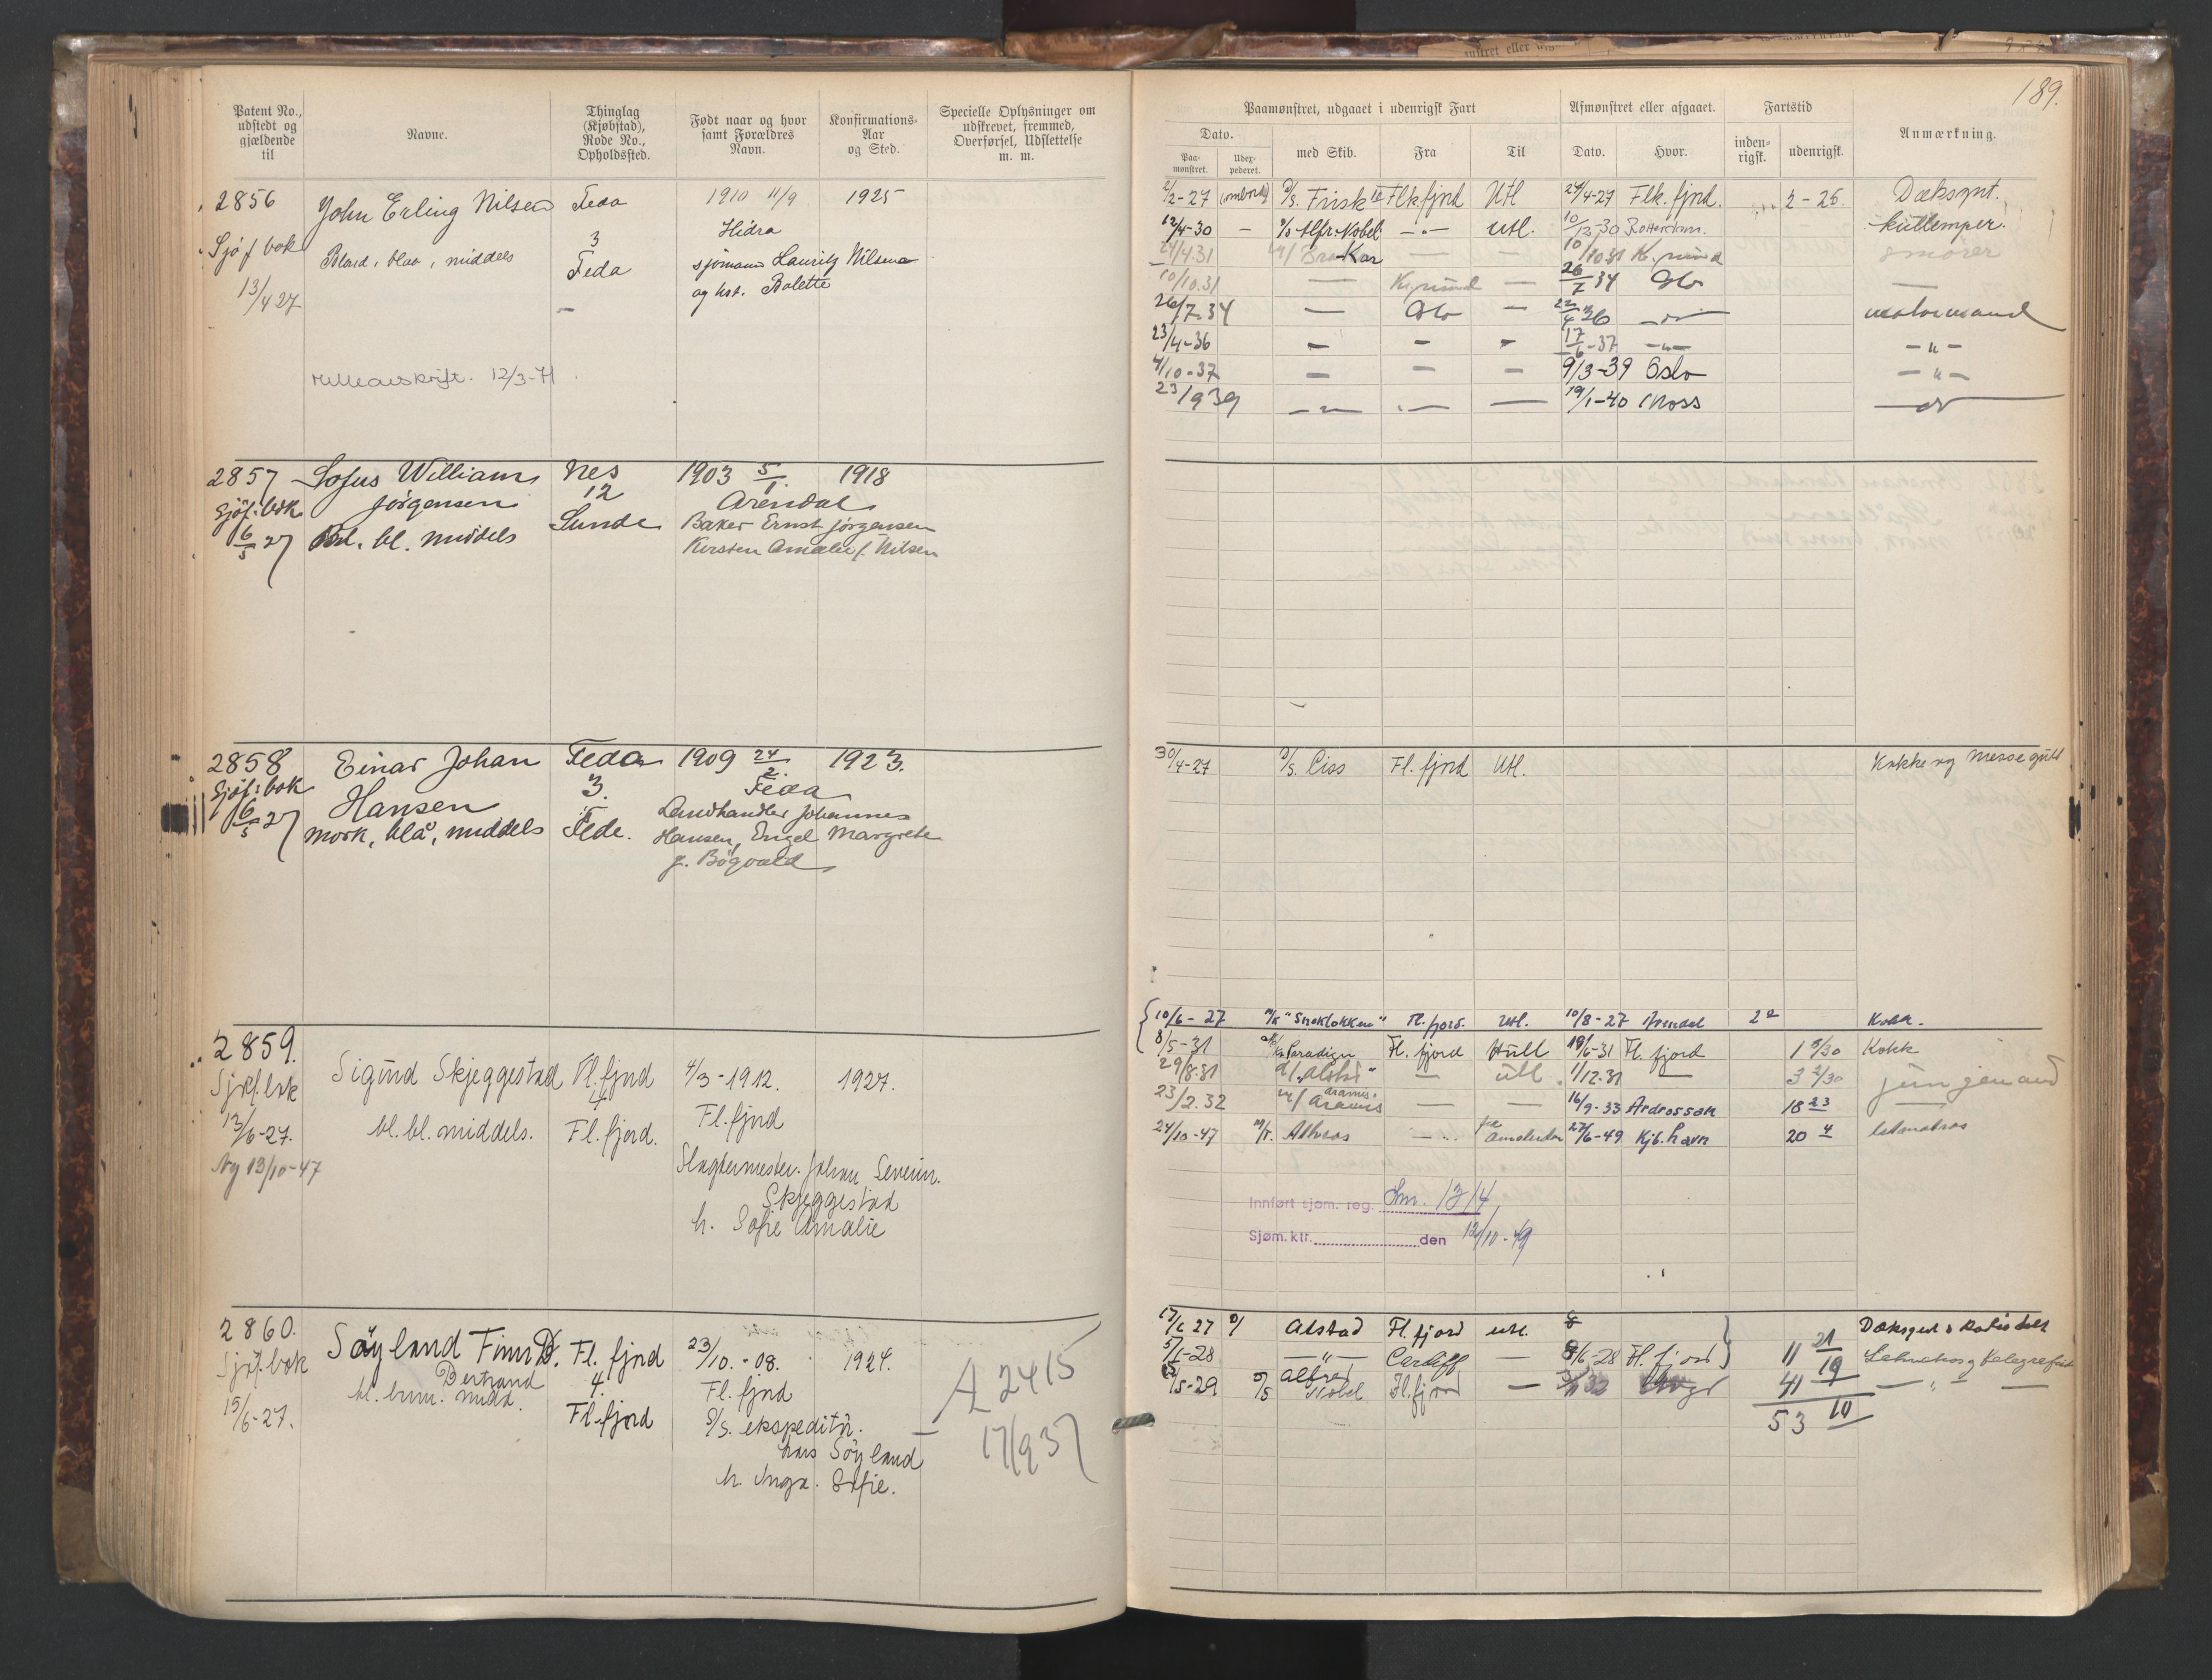 189.
Patent No., udstedt og gjældende til
Navne.
Thinglag (Kjøbstad), Rode No., Opholdssted.
Født naar og hvor samt Forældres Navn.
Konfirmations-Aar og Sted.
Specielle Oplysninger om udskrevet, fremmed, Overførsel, Udslettelse m. m.
Paamønstret, udgaaet i udenrigsk Fart
Afmønstret eller afgaaet.
Fartstid
Anmærkning.
Dato.
Paa-mønstret.
Udex-pederet.
med Skib.
Fra
Til
Dato.
Hvor.
inden-rigsk.
udenrigsk.
2856 John Erling Nilsen Feda 1910 11/9 1925
Sjøf bok Blond, blaa, middels 3 Hidra
13/4 27 Feda sjømand Lauritz Nilsen
og hst. Bolette
12/3-71
2/2-27 ombord D/S. Frisk Flkfjord Utl 24/4-27 Flk.fjord. 2-25 Dæksgut.
12/4-30 - D/S Alfr. Nobel -"- Utl. 10/12-30 Rotterdam. kullemper.
24/4.31 M/ Bra-Kar — — 10/10 31 Kr.sund smører
10/10.31 — Kr.sund — 26/7 34 Oslo —
26/7.34 — Oslo — 22/4 36 — motormand
23/4-36 - - - 17/6-37 -"- -"-
4/10-37 - - - 9/3-39 Oslo -"-
23/9 39 — — — 19/1-40 Moss do
2857 Sofus William Nes 1903 5/1. 1918
Sjøf:bok Jørgensen 12 Arendal
6/5 27 Bl. bl. middels Sunde Baker Ernst Jørgensen
Kirsten Amalie f. Nilsen
2858 Einar Johan Feda 1909 24/2. 1923.
Sjøf:bok Hansen 3. Feda
6/5 27 mørk, blå, middels Fede. Landhandler Johannes
Hansen, Engel Margrete
f. Bøgvald
30/4-27 D/S. Ciss Fl.fjord Utl. Kokk og Messegutt
10/6-27 M/K "Sneklokken" Fl.fjord. Utl. 10/8-27 Arendal 2 Kokk.
2859. Sigurd Skjeggestad Fl.fjord 4/3-1912. 1927.
Sjøf.bok bl. bl. middels. 4 Fl.fjord
13/6-27. Fl.fjord.
Ny 13/10-47 Slagtermester Johan Severin
Skjeggestad
h. Sofie Amalie
8/5-31 Paradign Fl.fjord Hull 19/6-31 Fl.fjord 1 Kokk
29/8.31 — utl. 1/12.31 — 3 2/30 jungmand
23/2.32 M/ Aramis — — 16/9-33 Ardrossan 18 23 —
24/10-47 M/T. Athos -"- fra Amsterdam 27/6-49 Kjb.havn 20 4 letmatros
Innført sjøm. reg. Snr. 1314
Sjøm.ktr. den 12/10-49
2860. Søyland Finn B. Fl.fjord 23/10.-08. 1924.
Sjøf.bok Bertrand 4. Fl.fjord
15/6-27. bl. brun. midd. Fl.fjord D/S. ekspeditør.
Hans Søyland
h. Inga. Sofie.
A 2415
17/9 37
17/6 27 D/ Alstad Fl.fjord utl.
5/1-28 -"- Cardiff — 8/6-28 Fl.fjord 11 21
/5-29 D/S Alfred Nobel Fl.fjord — 41 19 — " —
53 10